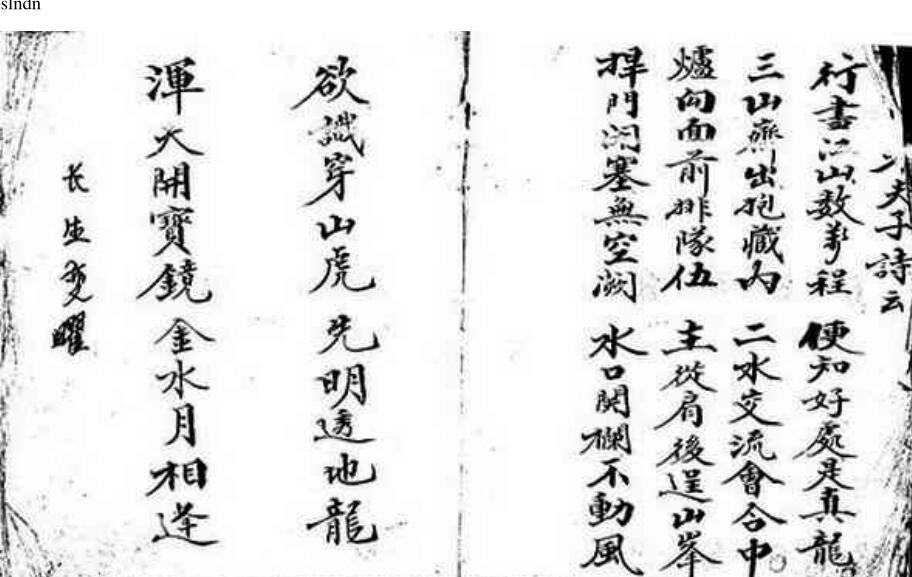 slndn
夫子詩云
行書江山数萬程 便知好處是真龍
三山齊出抱藏內 二水交流會合中
爐向面前排隊伍 主從肩後逞山峯
捍門闭塞無空澖 水口関欄不動風
欲識穿山虎 先明透地龍
渾天開寶鏡 金水月相逢
长生 曜